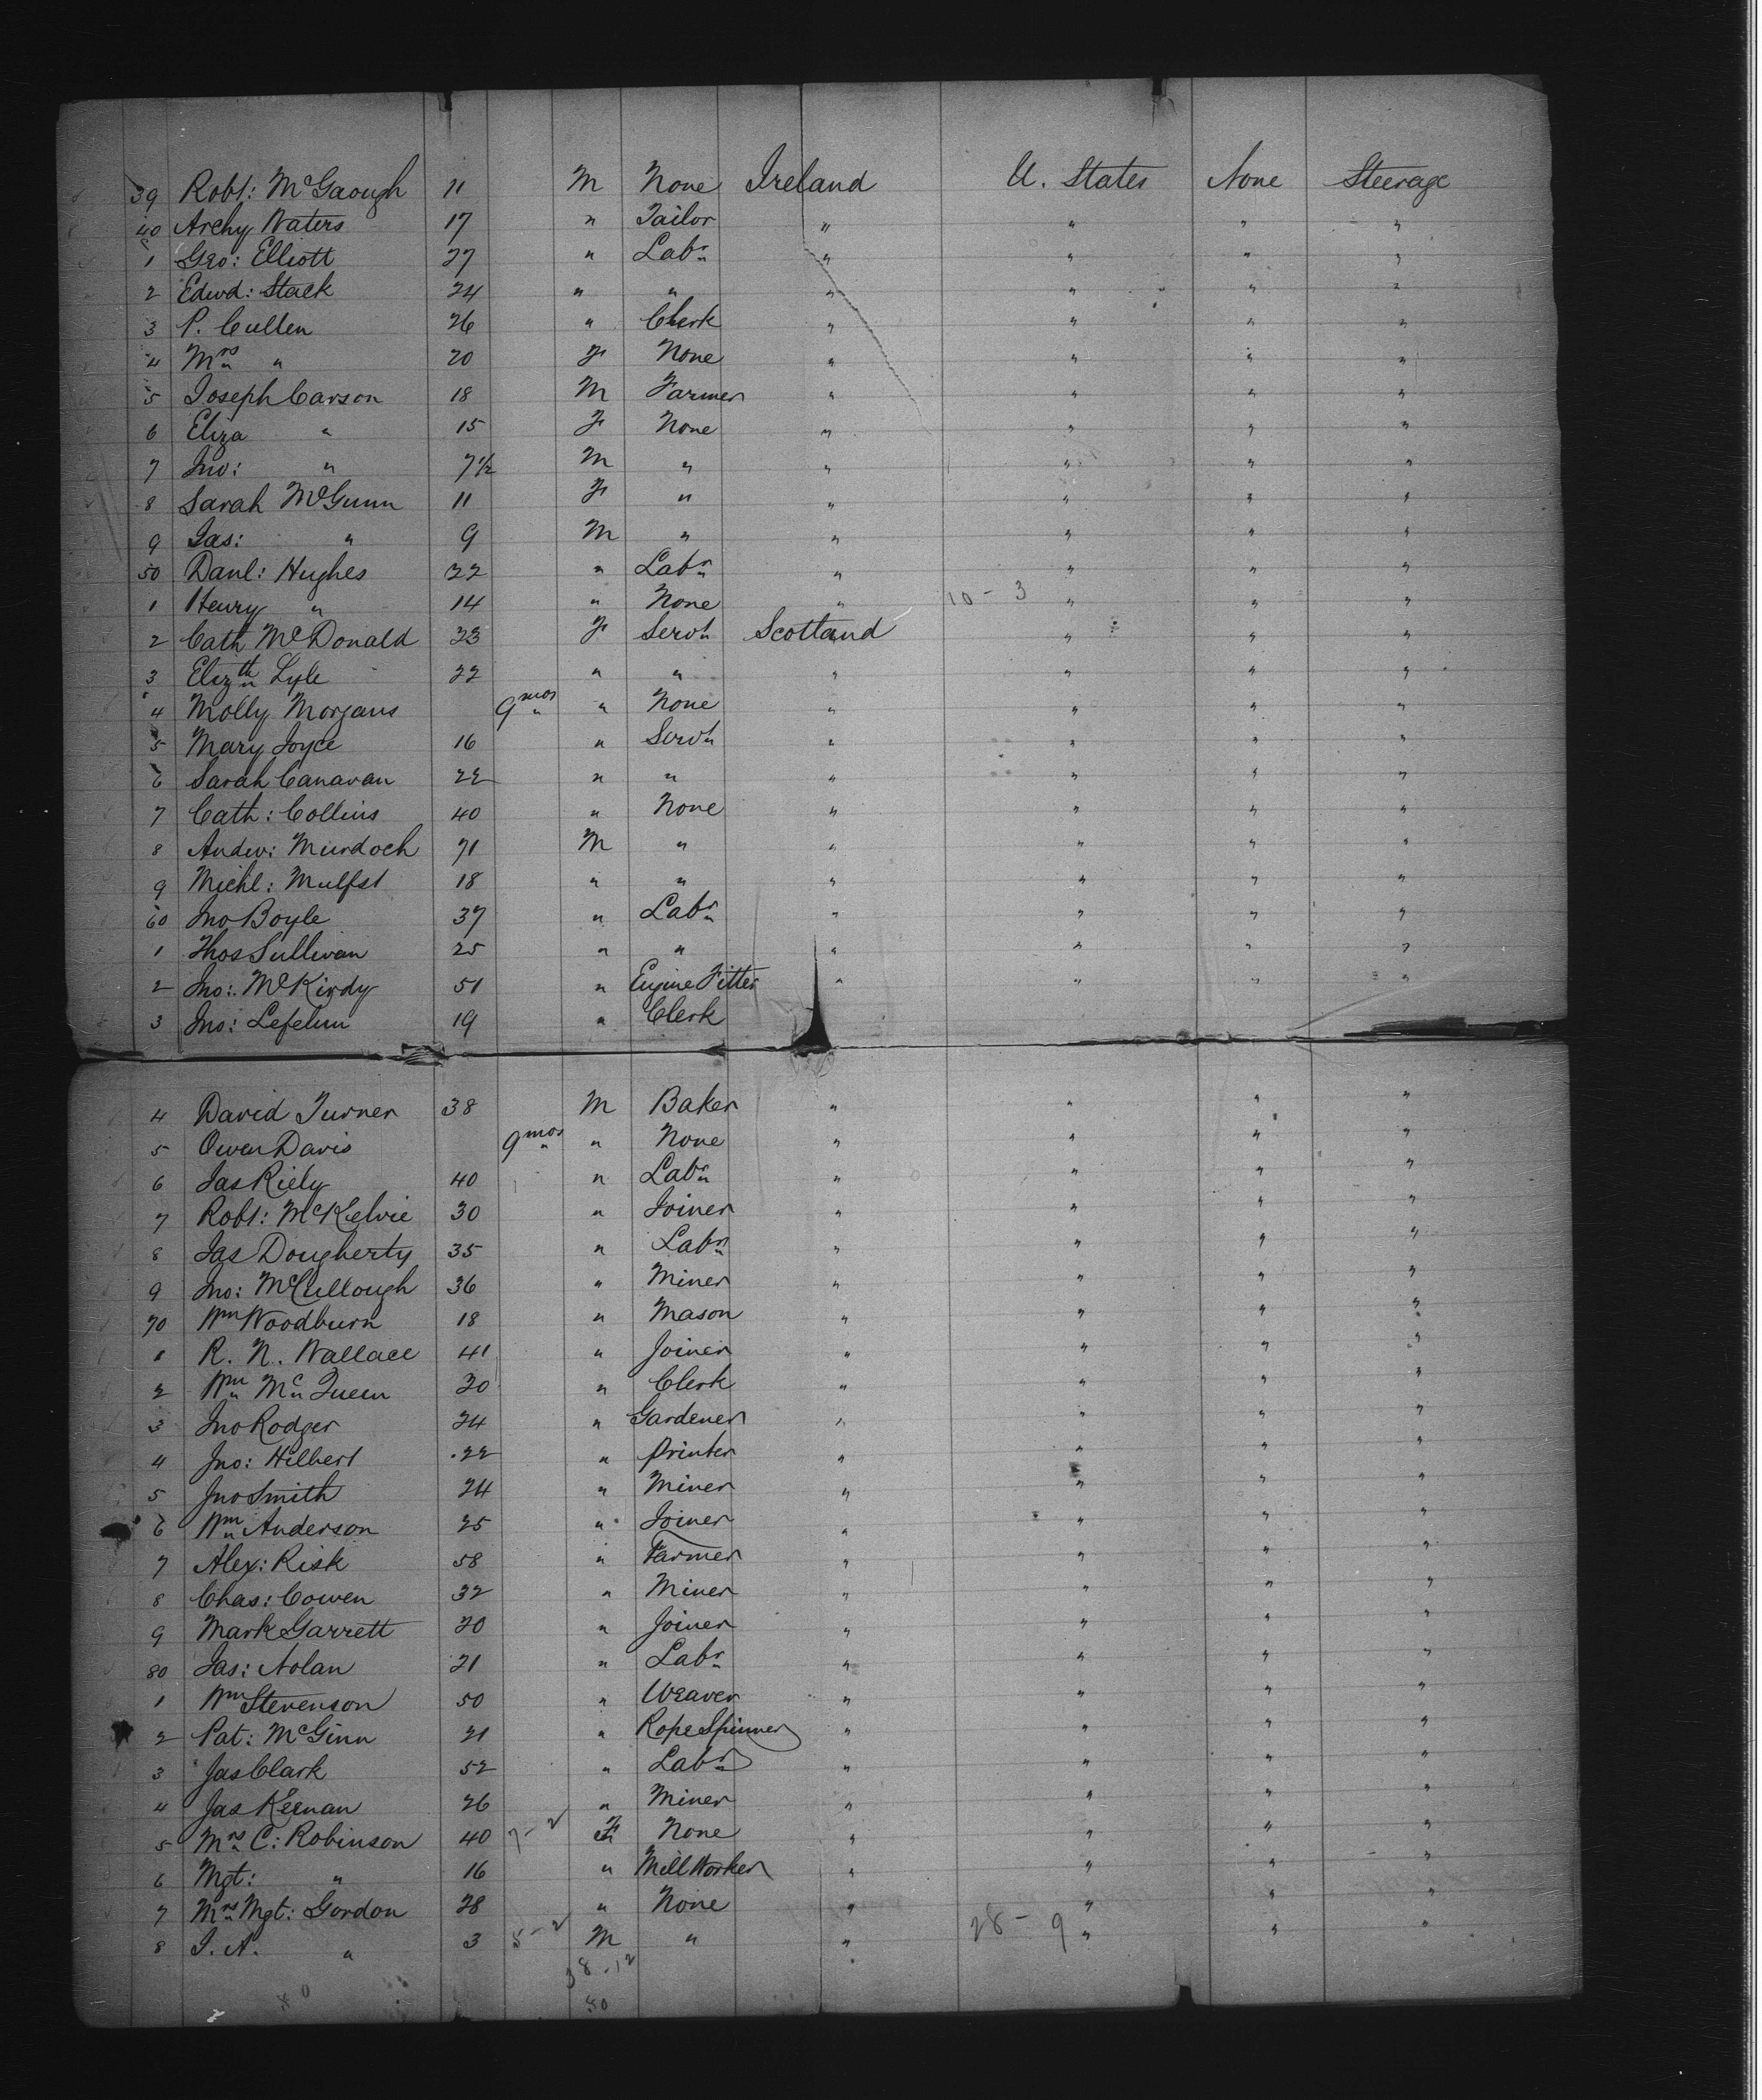 39 Robt: McGaough 11 M None Ireland U. States None Steerage
40 Archy Waters 17 " Tailor " " " "
1 Geo: Elliott 27 " Labr " " " "
2 Edwd: Stack 24 " " " " " "
3 P. Cullen 26 " Clerk " " " "
4 Mrs " 20 F None " " " "
5 Joseph Carson 18 M Farmer " " " "
6 Eliza " 15 F None " " " "
7 Jno: " 7½ M " " " " "
8 Sarah McGunn 11 F " " " " "
9 Jas: " 9 M " " " " "
50 Danl: Hughes 22 " Labr " " " "
1 Henry " 14 " None " 10-3 " " "
2 Cath McDonald 23 F Servt Scotland " " "
3 Elizth Lyle 22 " " " " " "
4 Molly Morgans 9 mos " None " " " "
5 Mary Joyce 16 " Servt " " " "
6 Sarah Canavan 22 " " " " " "
7 Cath: Collins 40 " None " " " "
8 Andw: Murdoch 71 M " " " " "
9 Michl: Mulfst 18 " " " " " "
60 Jno Boyle 37 " Labr " " " "
1 Thos Sullivan 25 " " " " " "
2 Jno: McKirdy 51 " Engine Fitter " " " "
3 Jno: 19 " Clerk
4 David Turner 38 M Baker " " " "
5 Owen Davis 9 mos " None " " " "
6 Jas Riely 40 " Labr " " " "
7 Robt: McKelvie 30 " Joiner " " " "
8 Jas Dougherty 35 " Labr " " " "
9 Jno: McCullough 36 " Miner " " " "
70 Wm Woodburn 18 " Mason " " " "
1 R. N. Wallace 41 " Joiner " " " "
2 Wm Mc Queen 30 " Clerk " " " "
3 Jno Rodger 24 " Gardener " " " "
4 Jno: Hilbert 22 " Printer " " " "
5 Jno Smith 24 " Miner " " " "
6 Wm Anderson 25 " Joiner " " " "
7 Alex: Risk 58 " Farmer " " " "
8 Chas: Cowen 32 " Miner " " " "
9 Mark Garrett 20 " Joiner " " " "
80 Jas: Nolan 21 " Labr " " " "
1 Wm Stevenson 50 " Weaver " " " "
2 Pat: McGinn 21 " Rope Spinner " " " "
3 Jas Clark 52 " Labr " " " "
4 Jas Keenan 26 " Miner " " " "
5 Mrs C: Robinson 40 7-2 F None " " " "
6 Mgt: " 16 " Mill Worker " " " "
7 Mrs Mgt: Gordon 28 " None " " " "
8 J. A. " 3 5-2 M " " 28-9 " " "
38-12
50